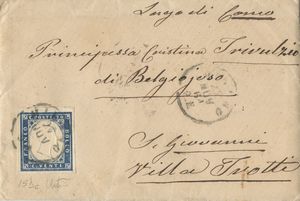 Lago di Como
Principessa Cristina Trivulzio
di Belgiojoso
S. Giovanni
Villa Trotti
C. POSTE 20
FRANCO
BOLLO
C. VENTI